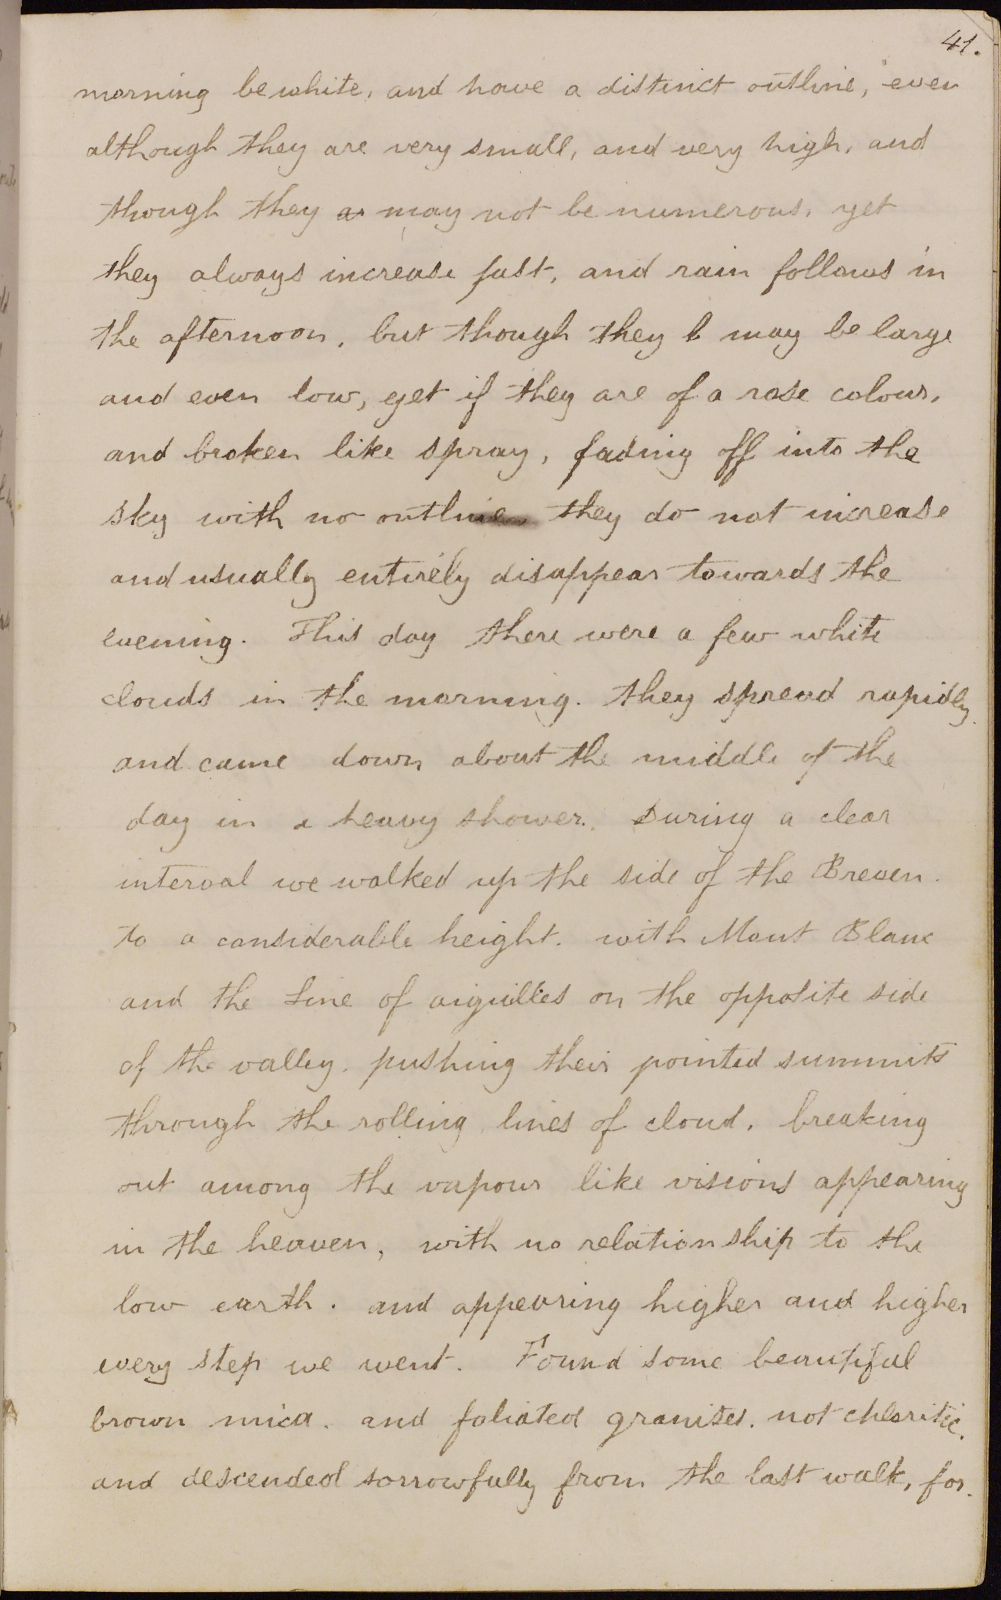 41.
morning be white, and have a distinct outline, even
although they are very small, and very high, and
though they a may not be numerous, yet
they always increase fast, and rain follows in
the afternoon, but though they b may be large
and even low, yet if they are of a rose colour,
and broken like spray, fading off into the
sky with no outline they do not increase
and usually entirely disappear towards the
evening. This day there were a few white
clouds in the morning. they spread rapidly
and came down about the middle of the
day in a heavy shower. During a clear
interval we walked up the side of the Breven.
to a considerable height. with Mont Blanc
and the line of aiguilles on the opposite side
of the valley. pushing their pointed summits
through the rolling lines of cloud. breaking
out among the vapour like visions appearing
in the heaven, with no relationship to the
low earth. and appearing higher and higher
every step we went. Found some beautiful
brown mica. and foliated granites. not chloritic.
and descended sorrowfully from the last walk, for.